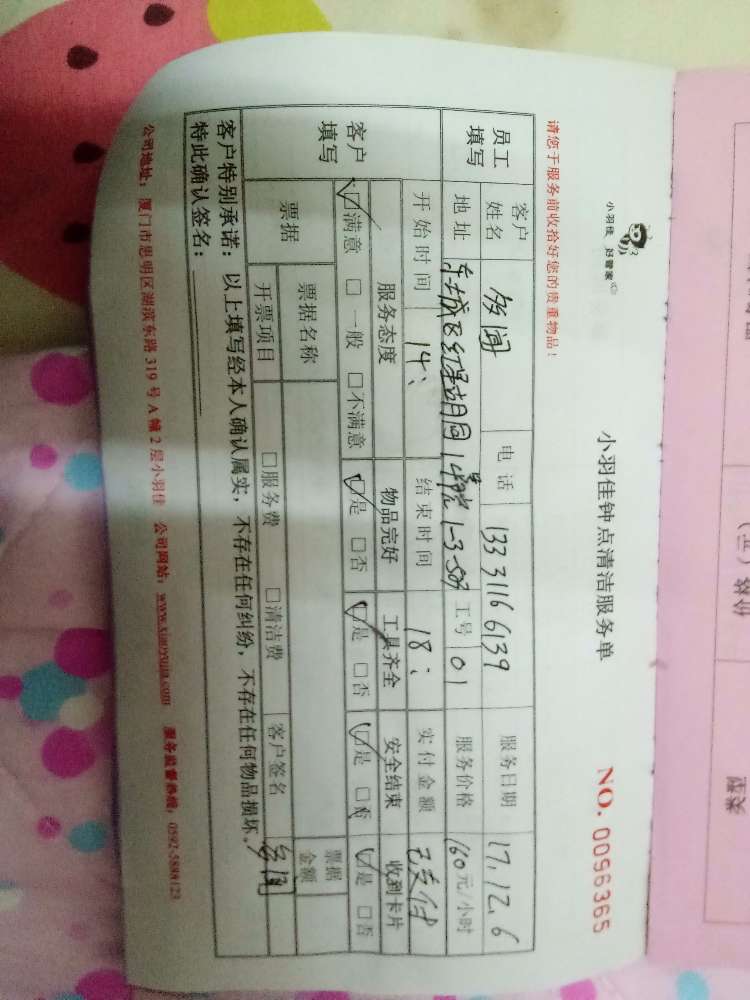 小羽佳 好管家
小羽佳钟点清洁服务单
NO. 0056365
请您于服务前收拾好您的贵重物品！
员工填写 客户姓名 多闻 电话 133 3116 6139 服务日期 17.12.6
地址 东城区红星胡同14号院1-3-503 工号 01 服务价格 160元/小时
开始时间 14： 结束时间 18： 实付金额 已支付
客户填写 服务态度 物品完好 工具齐全 安全结束 收到卡片
□满意 □一般 □不满意 □是 □否 □是 □否 □是 □否 □是 □否
票据 票据名称 票据金额
开票项目 □服务费 □清洁费 客户签名
客户特别承诺：以上填写经本人确认属实，不存在任何纠纷，不存在任何物品损坏。
特此确认签名：
公司地址：厦门市思明区湖滨东路319号A幢2层小羽佳 公司网站：www.xiaoyujia.com 服务监督热线：0592-5888123
价格（元）